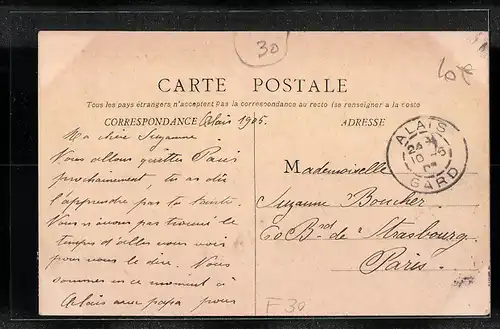 30
CARTE POSTALE
Tous les pays étrangers n'acceptent pas la correspondance au recto (se renseigner à la poste
CORRESPONDANCE Alais 1905.
ADRESSE
Ma chère Suzanne
Nous allons quitter Paris
prochainement, tu as dû
l'apprendre par ta tante.
Nous n'avons pas trouvé le
temps d'aller vous voir
pour vous le dire. Nous
sommes en ce moment à
Alais avec papa pour
ALAIS
10
GARD
Mademoiselle
Suzanne Boucher
60 Brd de Strasbourg
Paris.
F 30